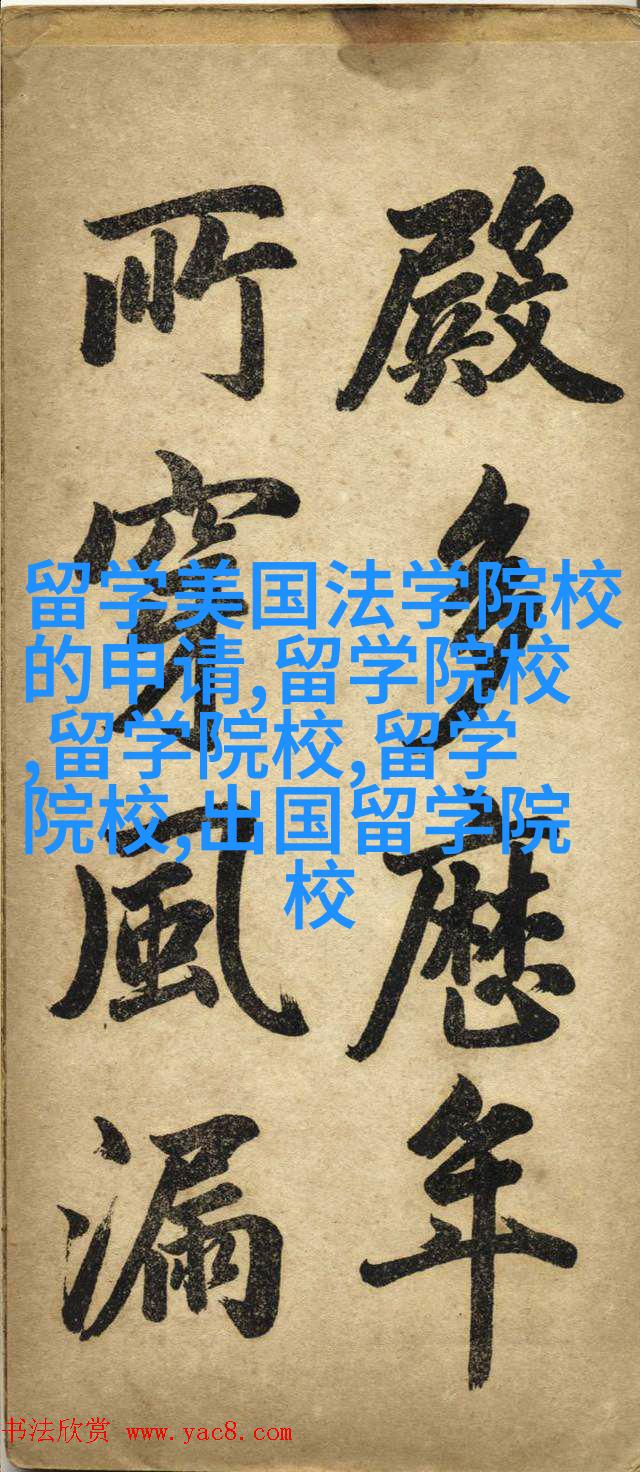 殿多歷年
所穿風漏
留学美国法学院校
的申请,留学院校
,留学院校,留学
院校,出国留学院
校
书法欣赏 www.yac8.com